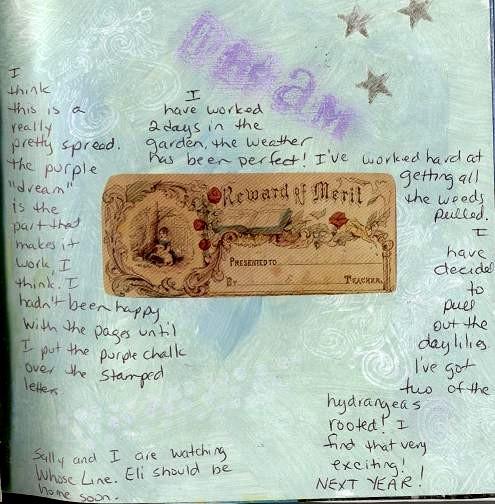 Dream
I
think
this is a
really
pretty spread.
the purple
"dream"
is the
part that
makes it
work, I
think. I
hadn't been happy
with the pages until
I put the purple chalk
over the stamped
letters
I
have worked
2 days in the
garden, the weather
has been perfect! I've worked hard at
getting all
the weeds
pulled.
I
have
decided
to
pull
out the
daylilies
I've got
two of the
hydrangeas
rooted! I
find that very
exciting!
NEXT YEAR!
Reward of Merit
PRESENTED TO
BY TEACHER.
Sally and I are watching
Whose Line. Eli should be
home soon.